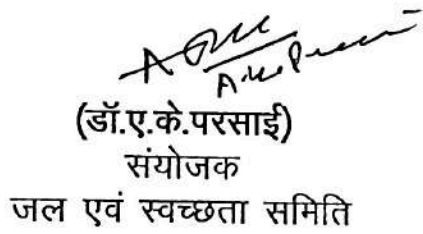 (डॉ.ए.के.परसाई)
संयोजक
जल एवं स्वच्छता समिति